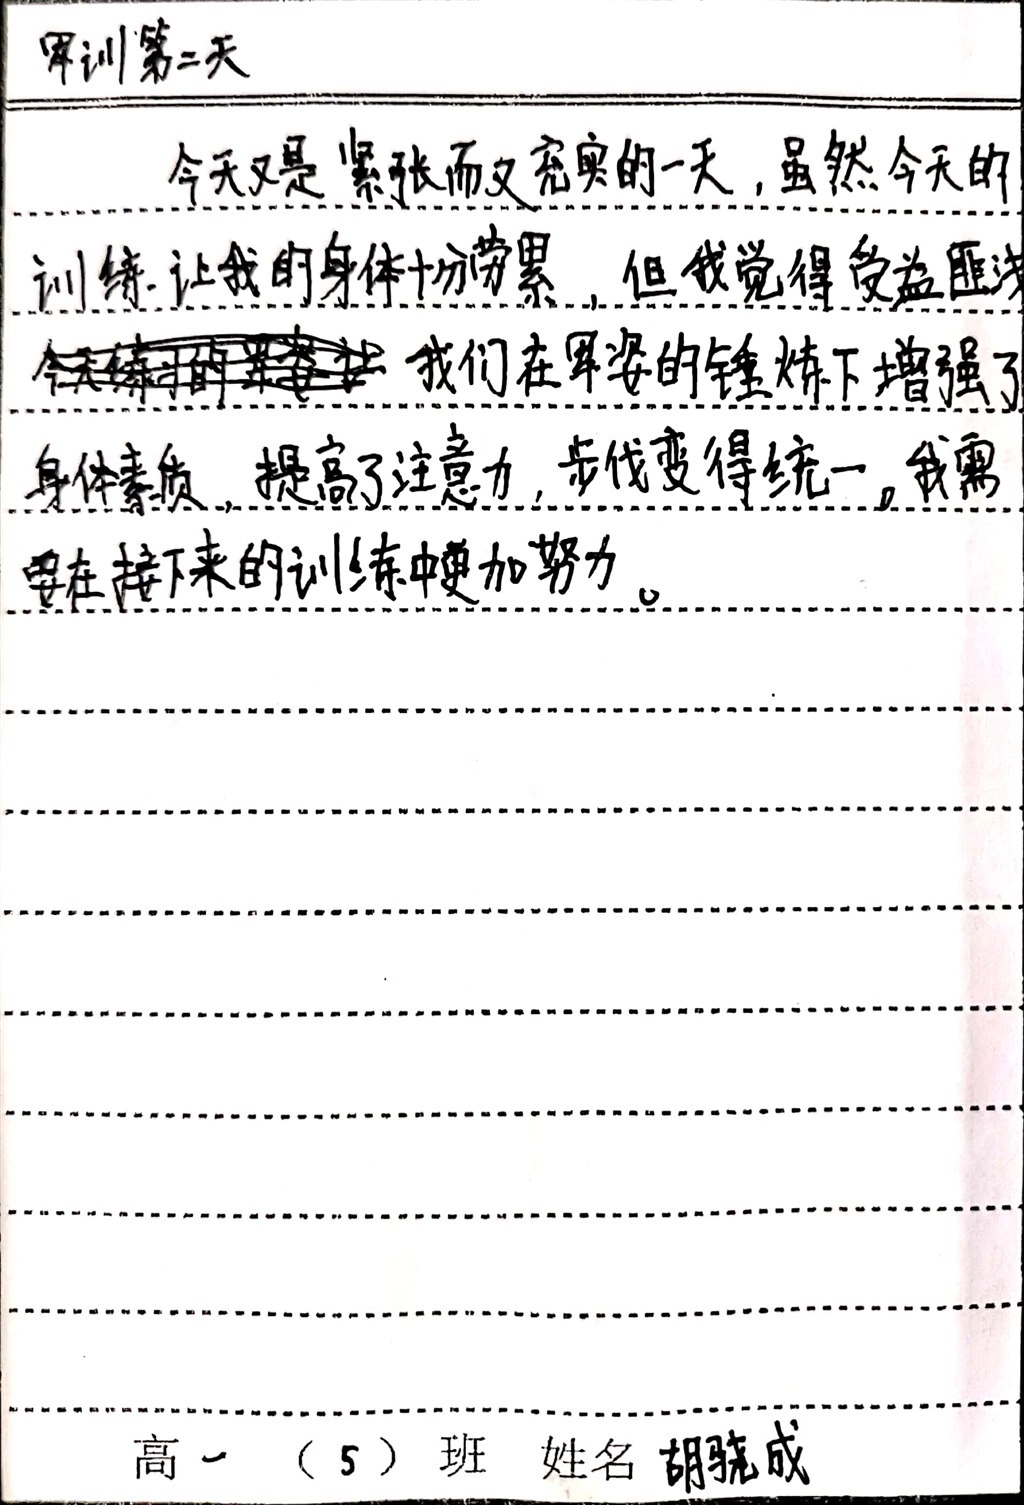 军训第二天
今天又是紧张而又充实的一天，虽然今天的
训练让我的身体十分劳累，但我觉得受益匪浅
今天练习的军姿让 我们在军姿的锤炼下增强了
身体素质，提高了注意力，步伐变得统一。我需
要在接下来的训练中更加努力。
高一（5）班 姓名 胡骁成